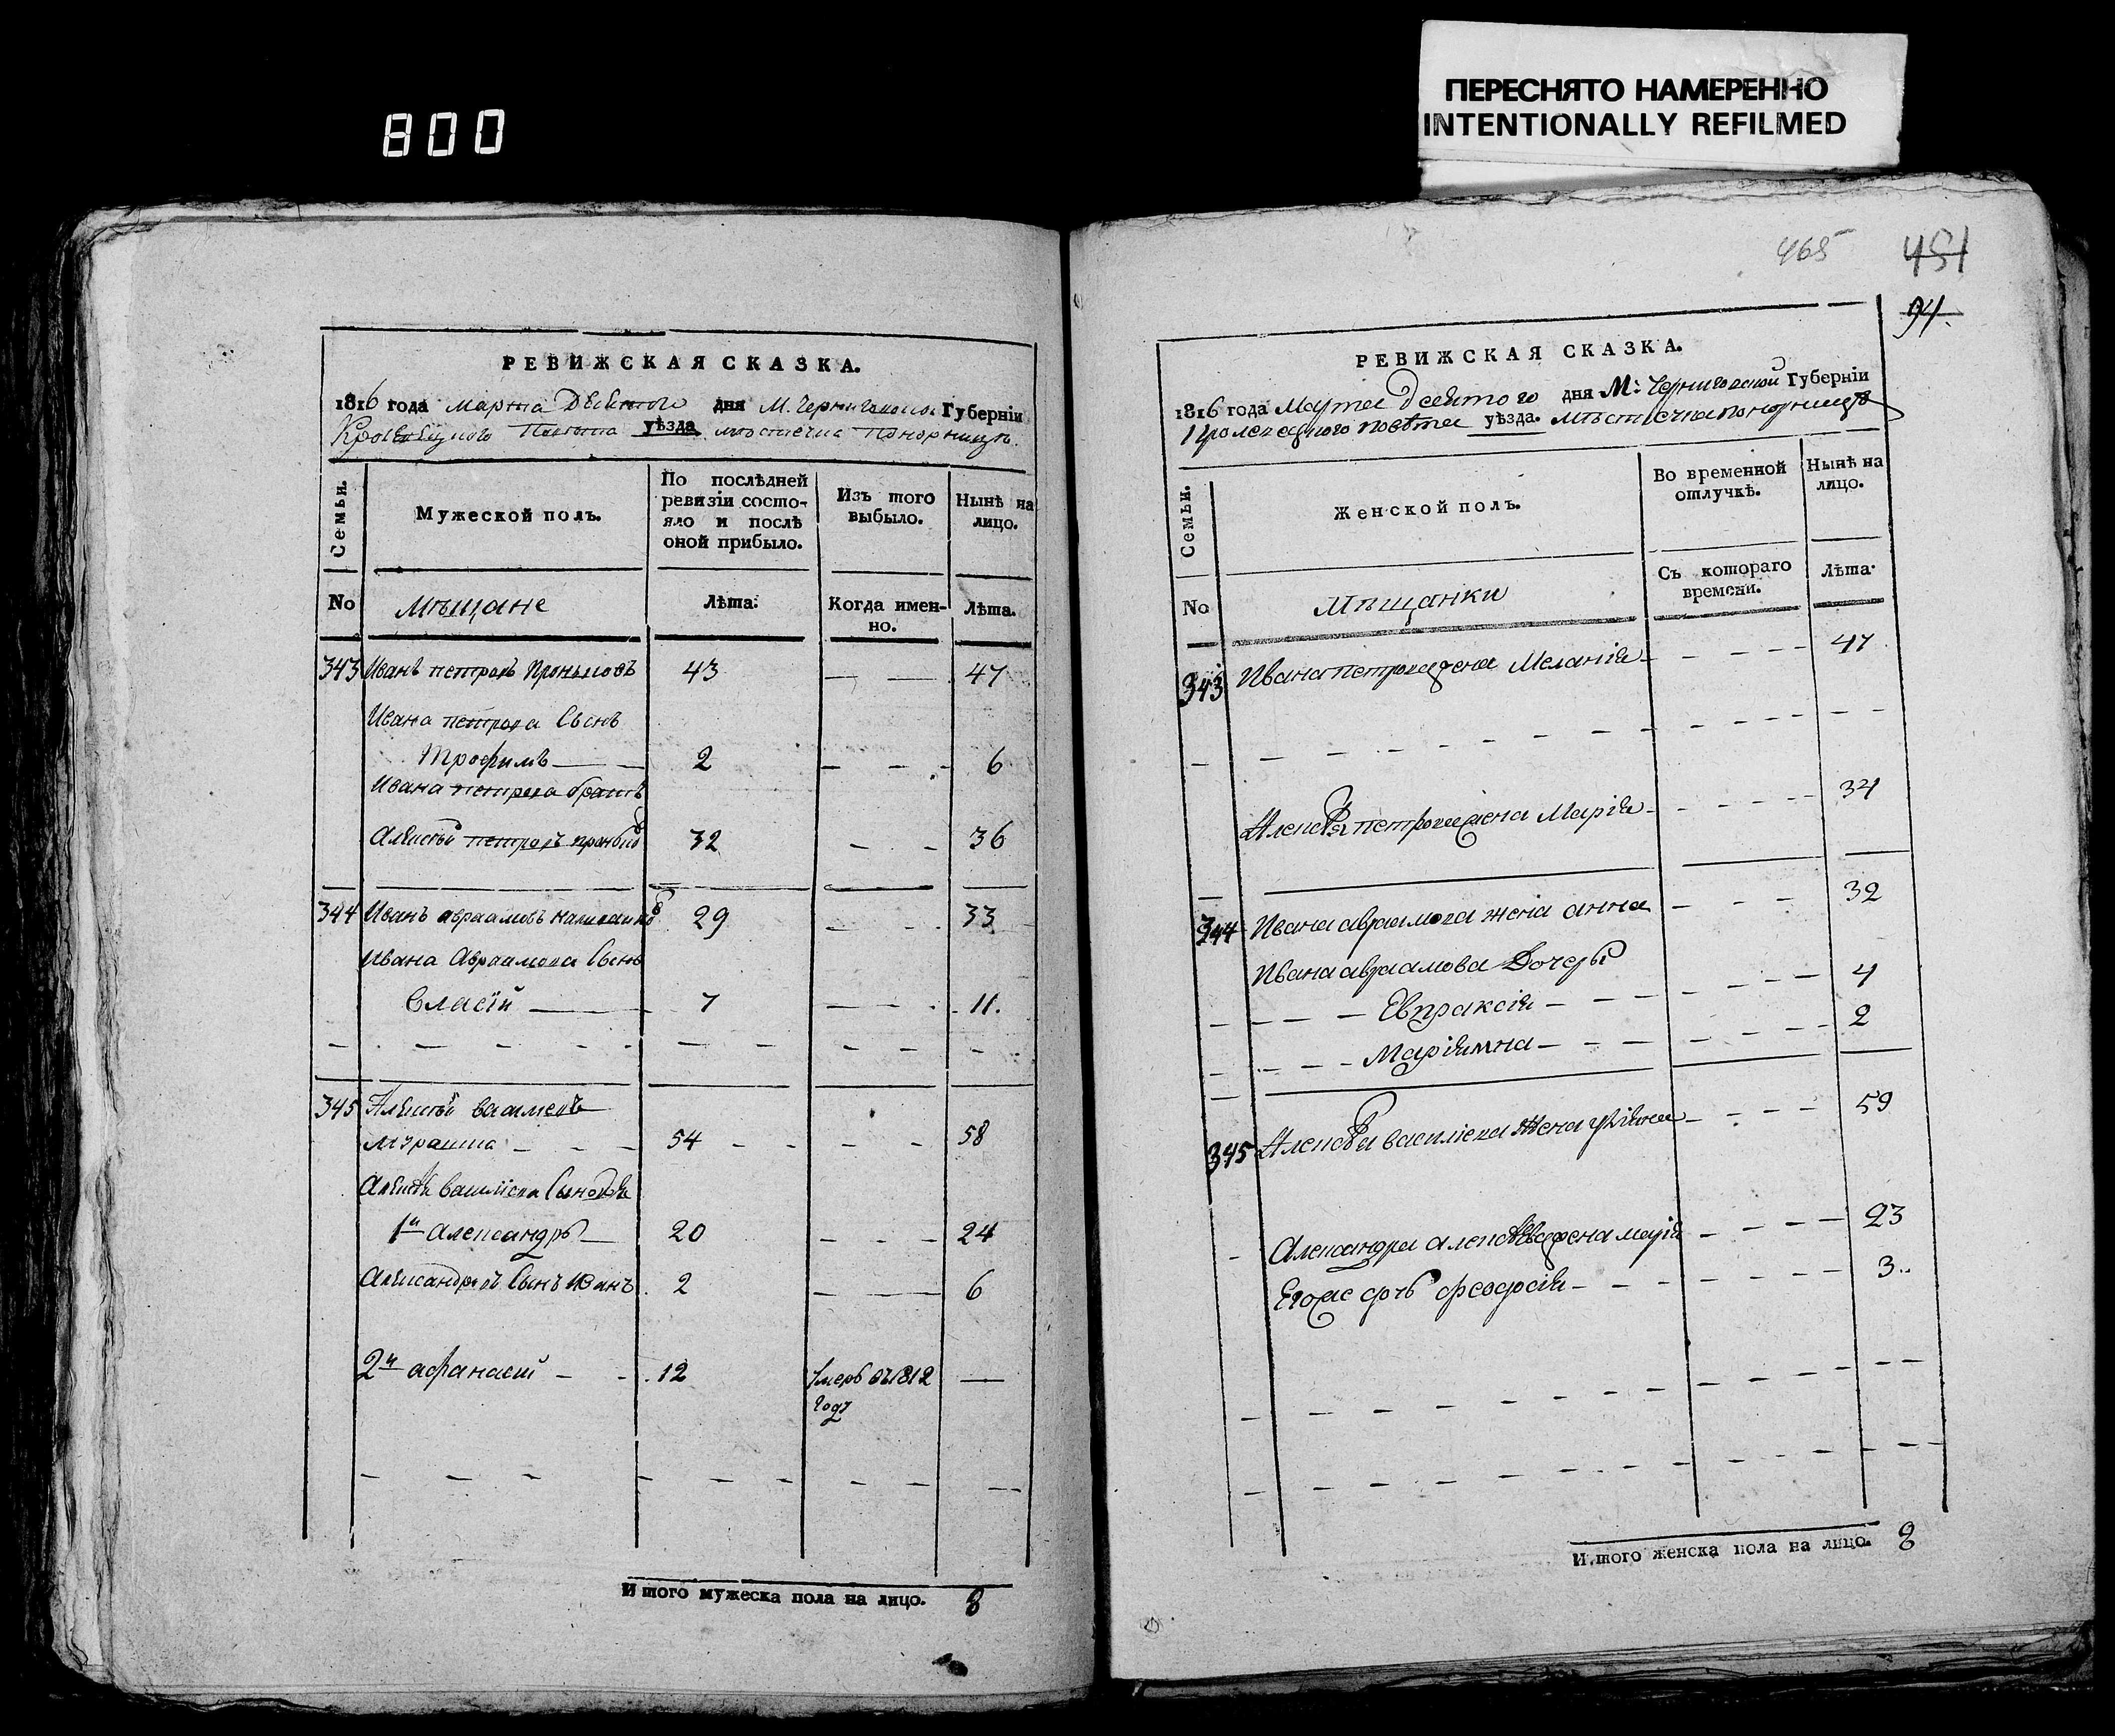 800
ПЕРЕСНЯТО НАМЕРЕННО
INTENTIONALLY REFILMED
РЕВИЖСКАЯ СКАЗКА.
1816 года Марта Девятого дня М. Черниговской Губерніи
Кролевецкого Повѣта уѣзда мѣстечка Понорницѣ.
Семьи.
Мужеской полъ.
По послѣдней
ревизіи состо-
яло и послѣ
оной прибыло.
Изъ того
выбыло.
Нынѣ на
лицо.
No
Мѣщане
Лѣта:
Когда имен-
но.
Лѣта.
343 Иванъ петровъ 43 — — 47
Ивана петрова Сынъ
Трофимъ 2 — — — 6
Ивана петрова братъ
Алексѣй петровъ 32 — — 36
344 Иванъ авраамовъ 29 33
Ивана Авраамова Сынъ
Власій 7 11.
345 Алексѣй василіевъ
54 — — — — 58
Алексѣя василіева Сыновья
1й Александръ 20 — — — 24
Александровъ Сынъ Иванъ 2 6
2й афанасій — — 12 Умеръ въ 1812 —
году
Итого мужеска пола на лицо. 8
465 451
94.
РЕВИЖСКАЯ СКАЗКА.
1816 года Марта девятого дня М: Черниговской Губерніи
Кролевецкого повѣта уѣзда. мѣстечка понорницѣ
Семьи.
Женской полъ.
Во временной
отлучкѣ.
Нынѣ на
лицо.
No
Мѣщанки
Съ котораго
времени.
Лѣта.
343 Ивана петрова жена Меланія — — — — 47
Алексѣя петрова жена Марія — — — — 34
344 Ивана авраамова жена анна — — — 32
Ивана авраамова Дочери
Евпраксія — 4
Маріямна — 2
345 Алексѣя василіева Жена — — — 59
Александра алексѣева жена марія — — — — 23
Его же дочь феодосія — 3..
Итого женска пола на лицо. 8